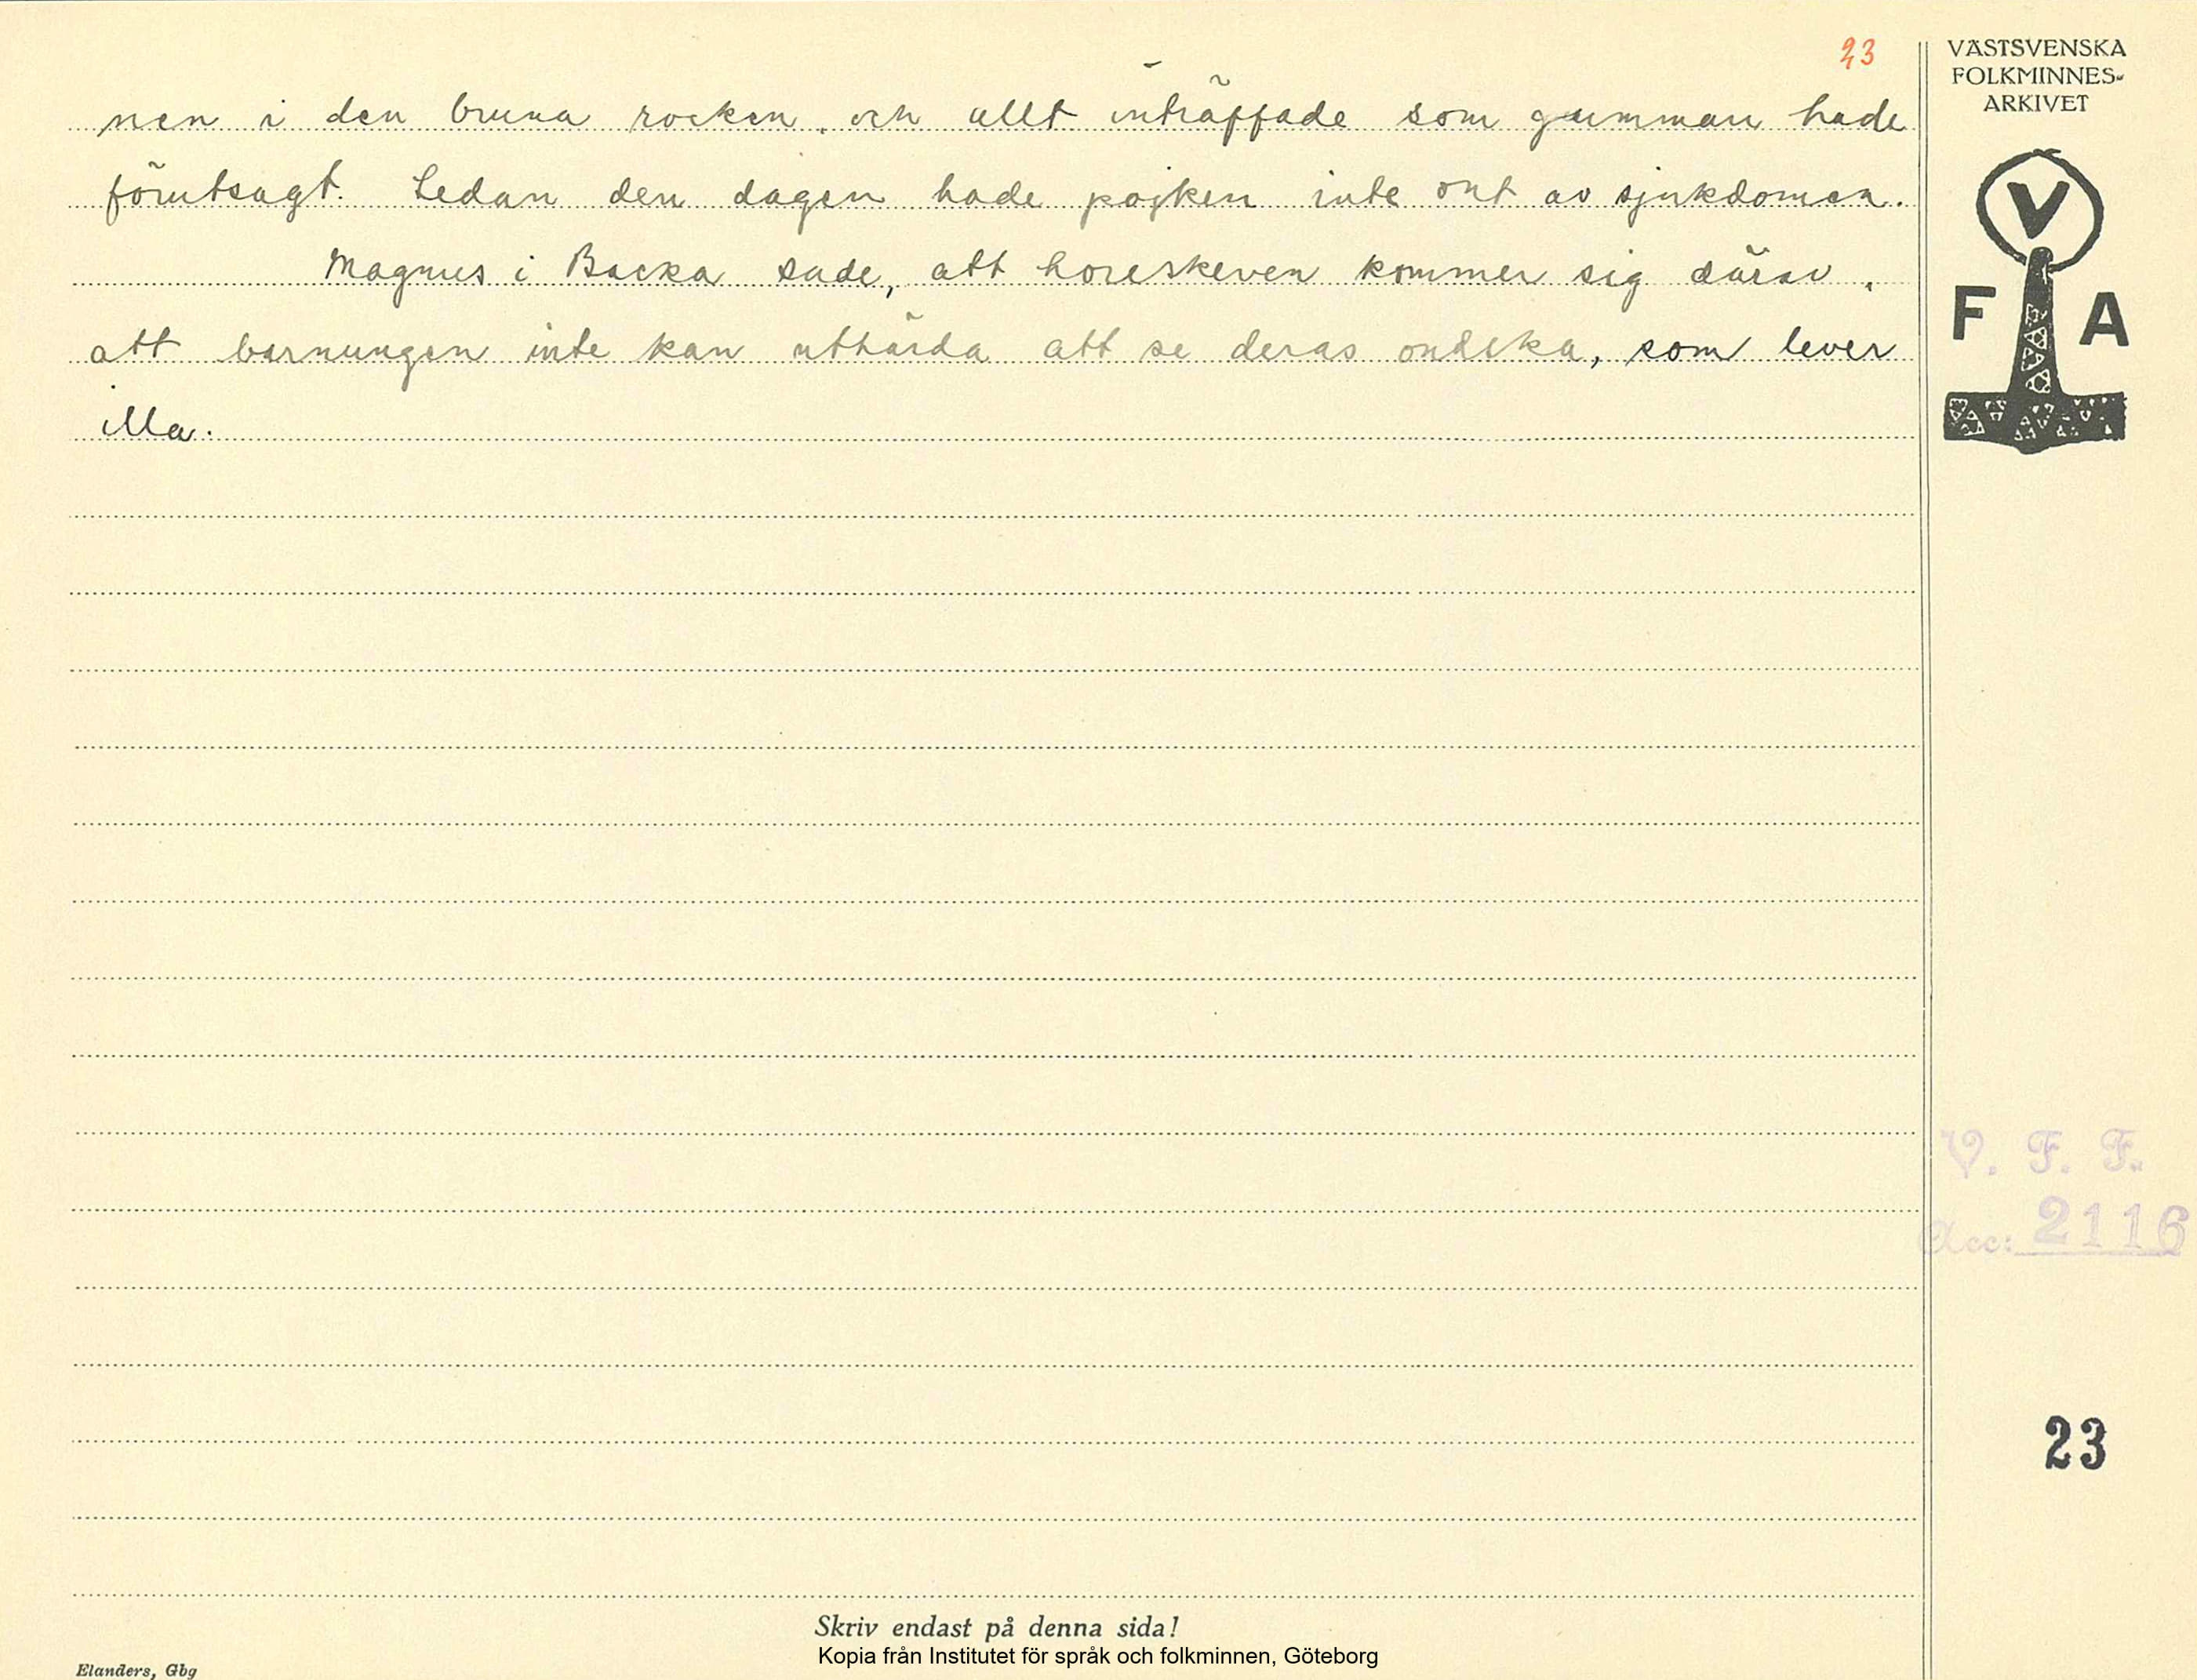 23
VÄSTSVENSKA
FOLKMINNES-
ARKIVET
nen i den bruna rocken, och allt inträffade som gumman hade
förutsagt. Sedan den dagen hade pojken inte ont av sjukdomen.
Magnus i Backa sade, att horeskeven kommer sig därav,
att barnungen inte kan uthärda att se deras ondska, som lever
illa.
V
F A
V. F. F.
Acc: 2116
23
Skriv endast på denna sida!
Kopia från Institutet för språk och folkminnen, Göteborg
Elanders, Gbg